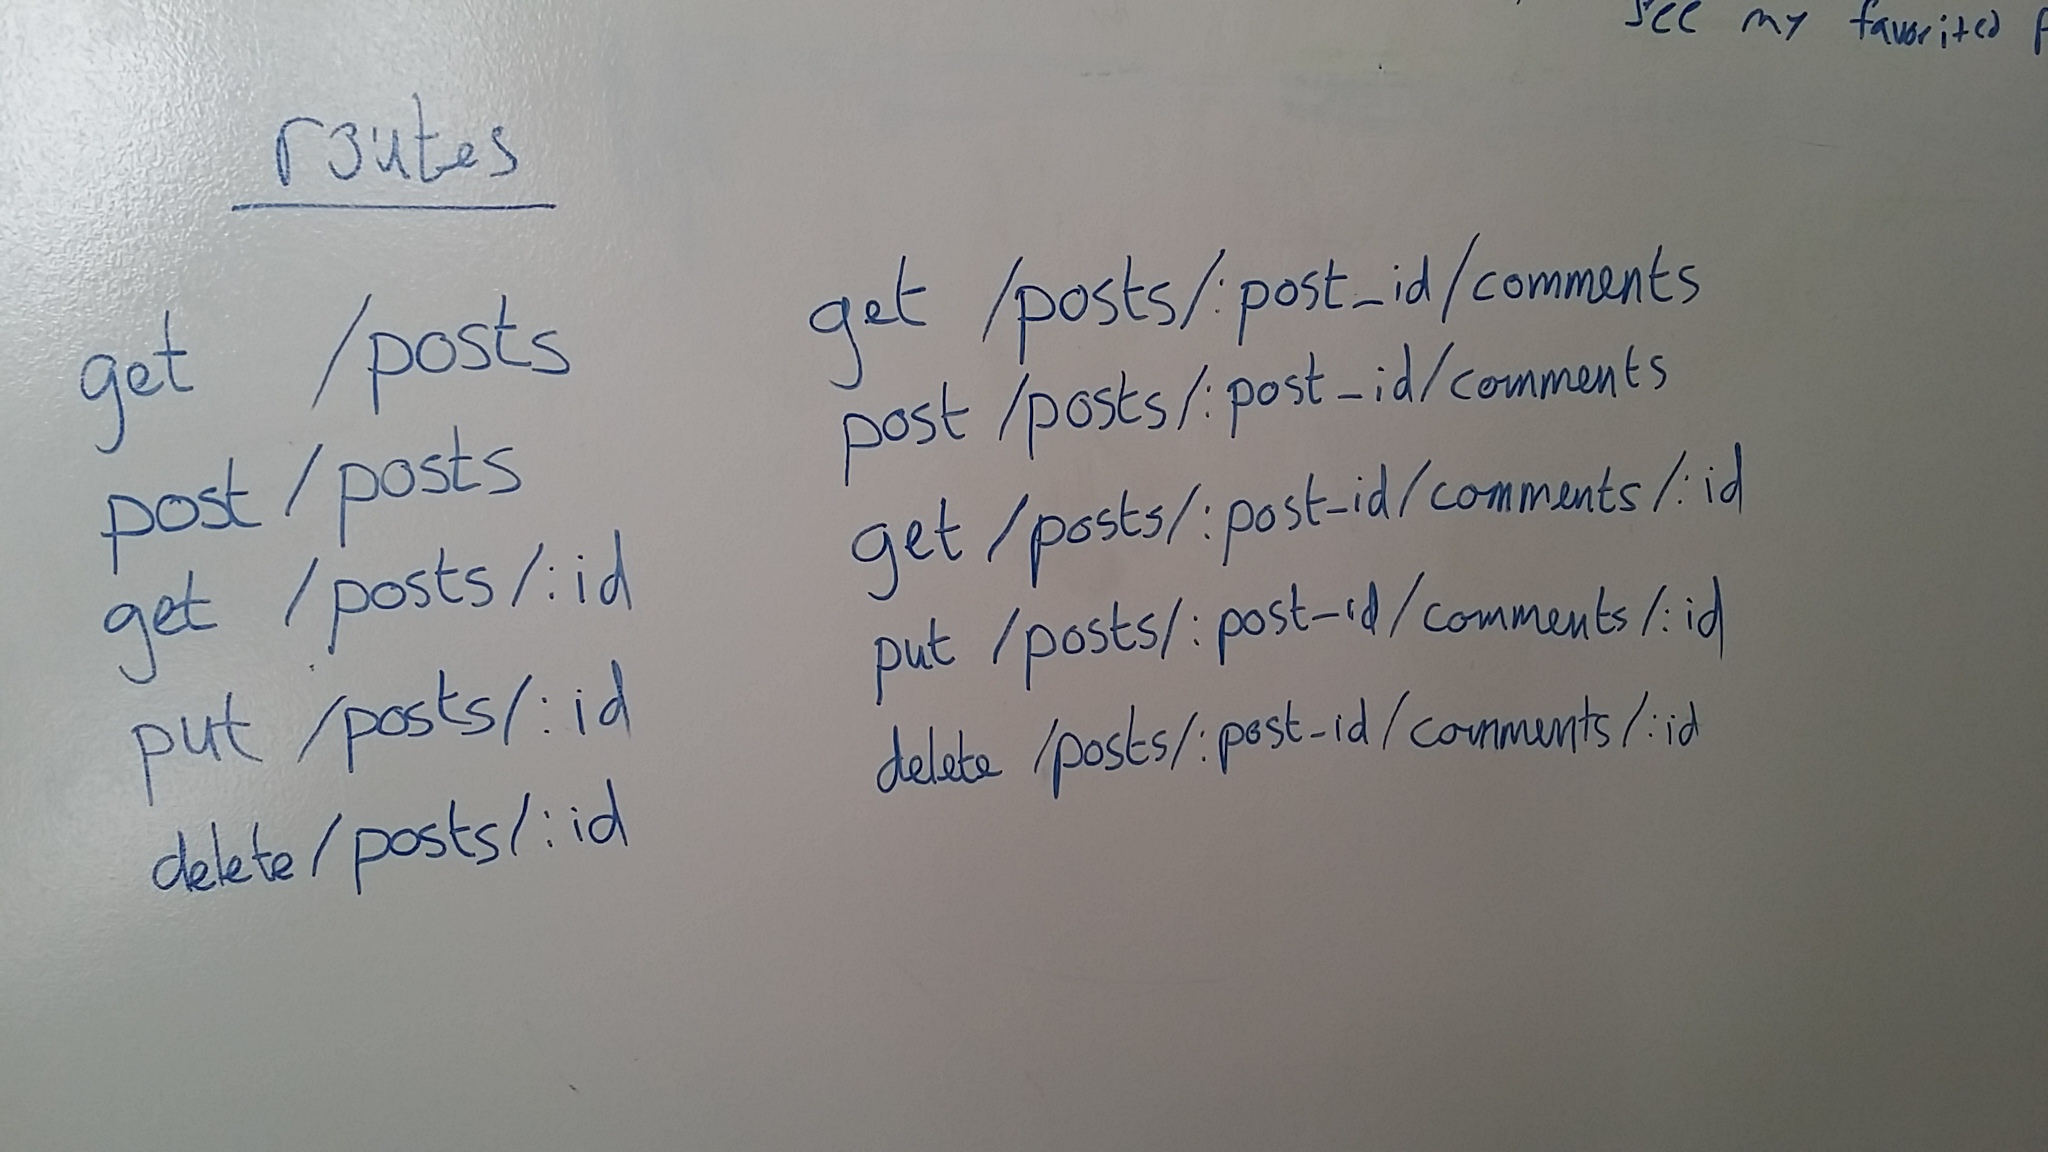 see my favorited
routes
get /posts
post /posts
get /posts/:id
put /posts/:id
delete /posts/:id
get /posts/:post_id/comments
post /posts/:post_id/comments
get /posts/:post_id/comments/:id
put /posts/:post_id/comments/:id
delete /posts/:post_id/comments/:id